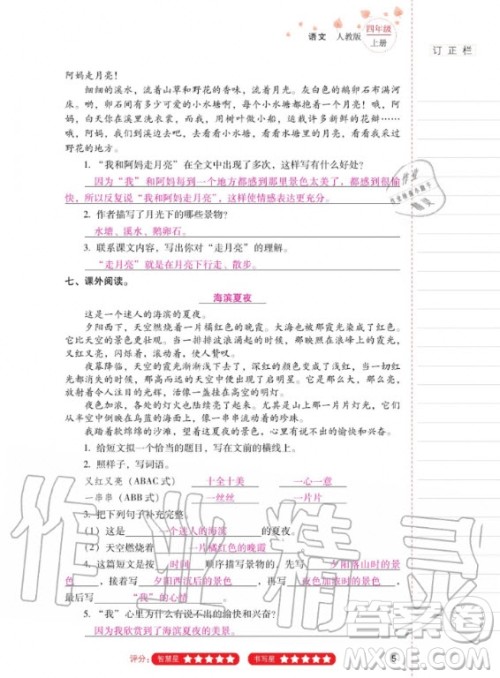 语文 人教版 四年级上册
订正栏
阿妈走月亮！
细细的溪水，流着山草和野花的香味，流着月光。灰白色的鹅卵石布满河
床。哟，卵石间有多少可爱的小水塘啊，每个小水塘都抱着一个月亮！哦，阿
妈，白天你在溪里洗衣裳，而我，用树叶做小船，运载许多新鲜的花瓣……哦，
阿妈，我们到溪边去吧，去看看小水塘，看看水塘里的月亮，看看我采过
野花的地方。
1. “我和阿妈走月亮”在全文中出现了多次，这样写有什么好处？
因为“我”和阿妈每到一个地方都感到那里景色太美了，都感到很愉
快，所以反复说“我和阿妈走月亮”，这样使情感表达更充分。
2. 作者描写了月光下的哪些景物？
水塘、溪水、鹅卵石。
3. 联系课文内容，写出你对“走月亮”的理解。
“走月亮”就是在月亮下行走、散步。
七、课外阅读。
海滨夏夜
这是一个迷人的海滨的夏夜。
夕阳西下，天空燃烧着一片橘红色的晚霞。大海也被那霞光染成了红色，
又红又亮！那一排排波浪涌起的时候，那映照在浪峰上的霞光，
一闪一闪的，滚动着……
夜幕降临，天空的霞光渐渐淡下去了，深红的颜色变成了浅红。当一切红
光都消失的时候，那高而深远的天空中出现了启明星。它是那么大，那么
亮，是那么令人注目的光辉。
夜色加浓，城市的灯火也陆续亮了起来。那一片片灯光，
倒映在海面上，随着波浪，像一串流动着的珍珠。
我踏着软绵绵的沙滩，望着这夏夜的景色，心里有说不出的愉快和兴奋。
1. 给短文拟一个恰当的题目，写在文前的横线上。
2. 照样子，写词语。
又红又亮（ABAC 式） 十全十美 一心一意
一串串（ABB 式） 一丝丝 一片片
3. 把下列句子补充完整。
（1）这是 一个迷人的海滨 的夏夜。
（2）天空燃烧着 一片橘红色的晚霞
4. 这篇短文是按 时间 顺序描写景物的，先写 夕阳落山时的景
色，接着写 夕阳西沉后的景色，再写 夜幕降临时的景色，最后写
“我”的心情
5. “我”心里为什么有说不出的愉快和兴奋？
因为我欣赏了海滨夏夜的美景。
评分： 智慧星 ★★★★★ 书写星 ★★★★★
5
作业精灵
答案圈
MXQE.COM